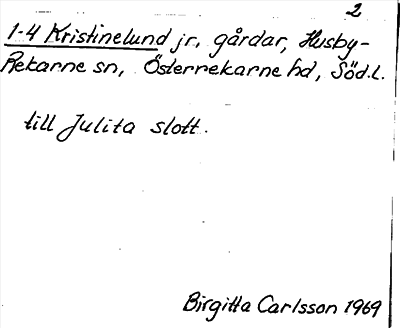 2
1-4 Kristinelund jr, gårdar, Husby-
Rekarne sn, Österrekarne hd, Söd.l.
till Julita slott.
Birgitta Carlsson 1969